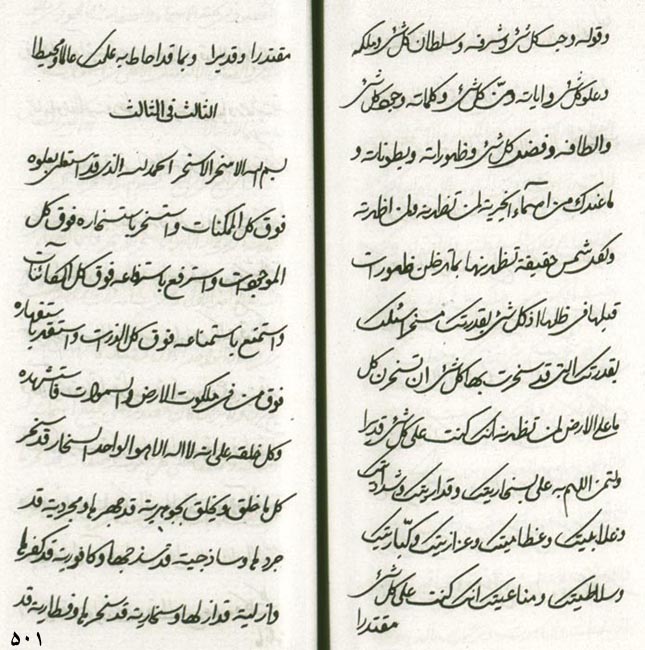 وقوله وحب كل شئ وشرفه وسلطان كل شئ وملكه
وعلو كل شئ واياته ومن كل شئ وكلماته وجود كل شئ
والطافه وفضل كل شئ وظهوراته وبطوناته و
ما عندك من اسماء الخيرية لمن تظهرنه ولمن اظهرته
وكعدد شمس حقيقة تظهرنها بما تدخلن ظهورات
قبلها فى ظلها اذ كل شئ بقدرتك مستخر اسئلك
بقدرتك التى قد سخرت بها كل شئ ان تسخرن كل
ما على الارض لمن تظهرنه انك كنت على كل شئ قديرا
ولتمن اللهم به على بسخاريتك وقداريتك وشداديتك
وغلابيتك وعظاميتك وعزازيتك وكباريتك
وسلاطيتك ومناعيتك انك كنت على كل شئ
مقتدرا
مقتدرا وقديرا وبما قد احاط به علمك عالما ومحيطا
الثالث فى الثالث
بسم الله الاسخر الاسخر الحمد لله الذى قد استعلى بعلوه
فوق كل الممكنات واستسخر باستسخاره فوق كل
الموجودات واسترفع باسترفاعه فوق كل الكائنات
واستمنع باستمناعه فوق كل الذرات واستقهر باستقهاره
فوق من فى ملكوت الارض والسموات فاستشهده
وكل خلقه على انه لا اله الا هو الواحد السخار قد سخر
كل ما خلق ويخلق بجوهرية قد جهرها ومجردية قد
جردها وساذجية قد سذجها وكافورية قد كفرها
وازلية قد ازلها وسخارية قد سخرها وفطارية قد
٥٠١